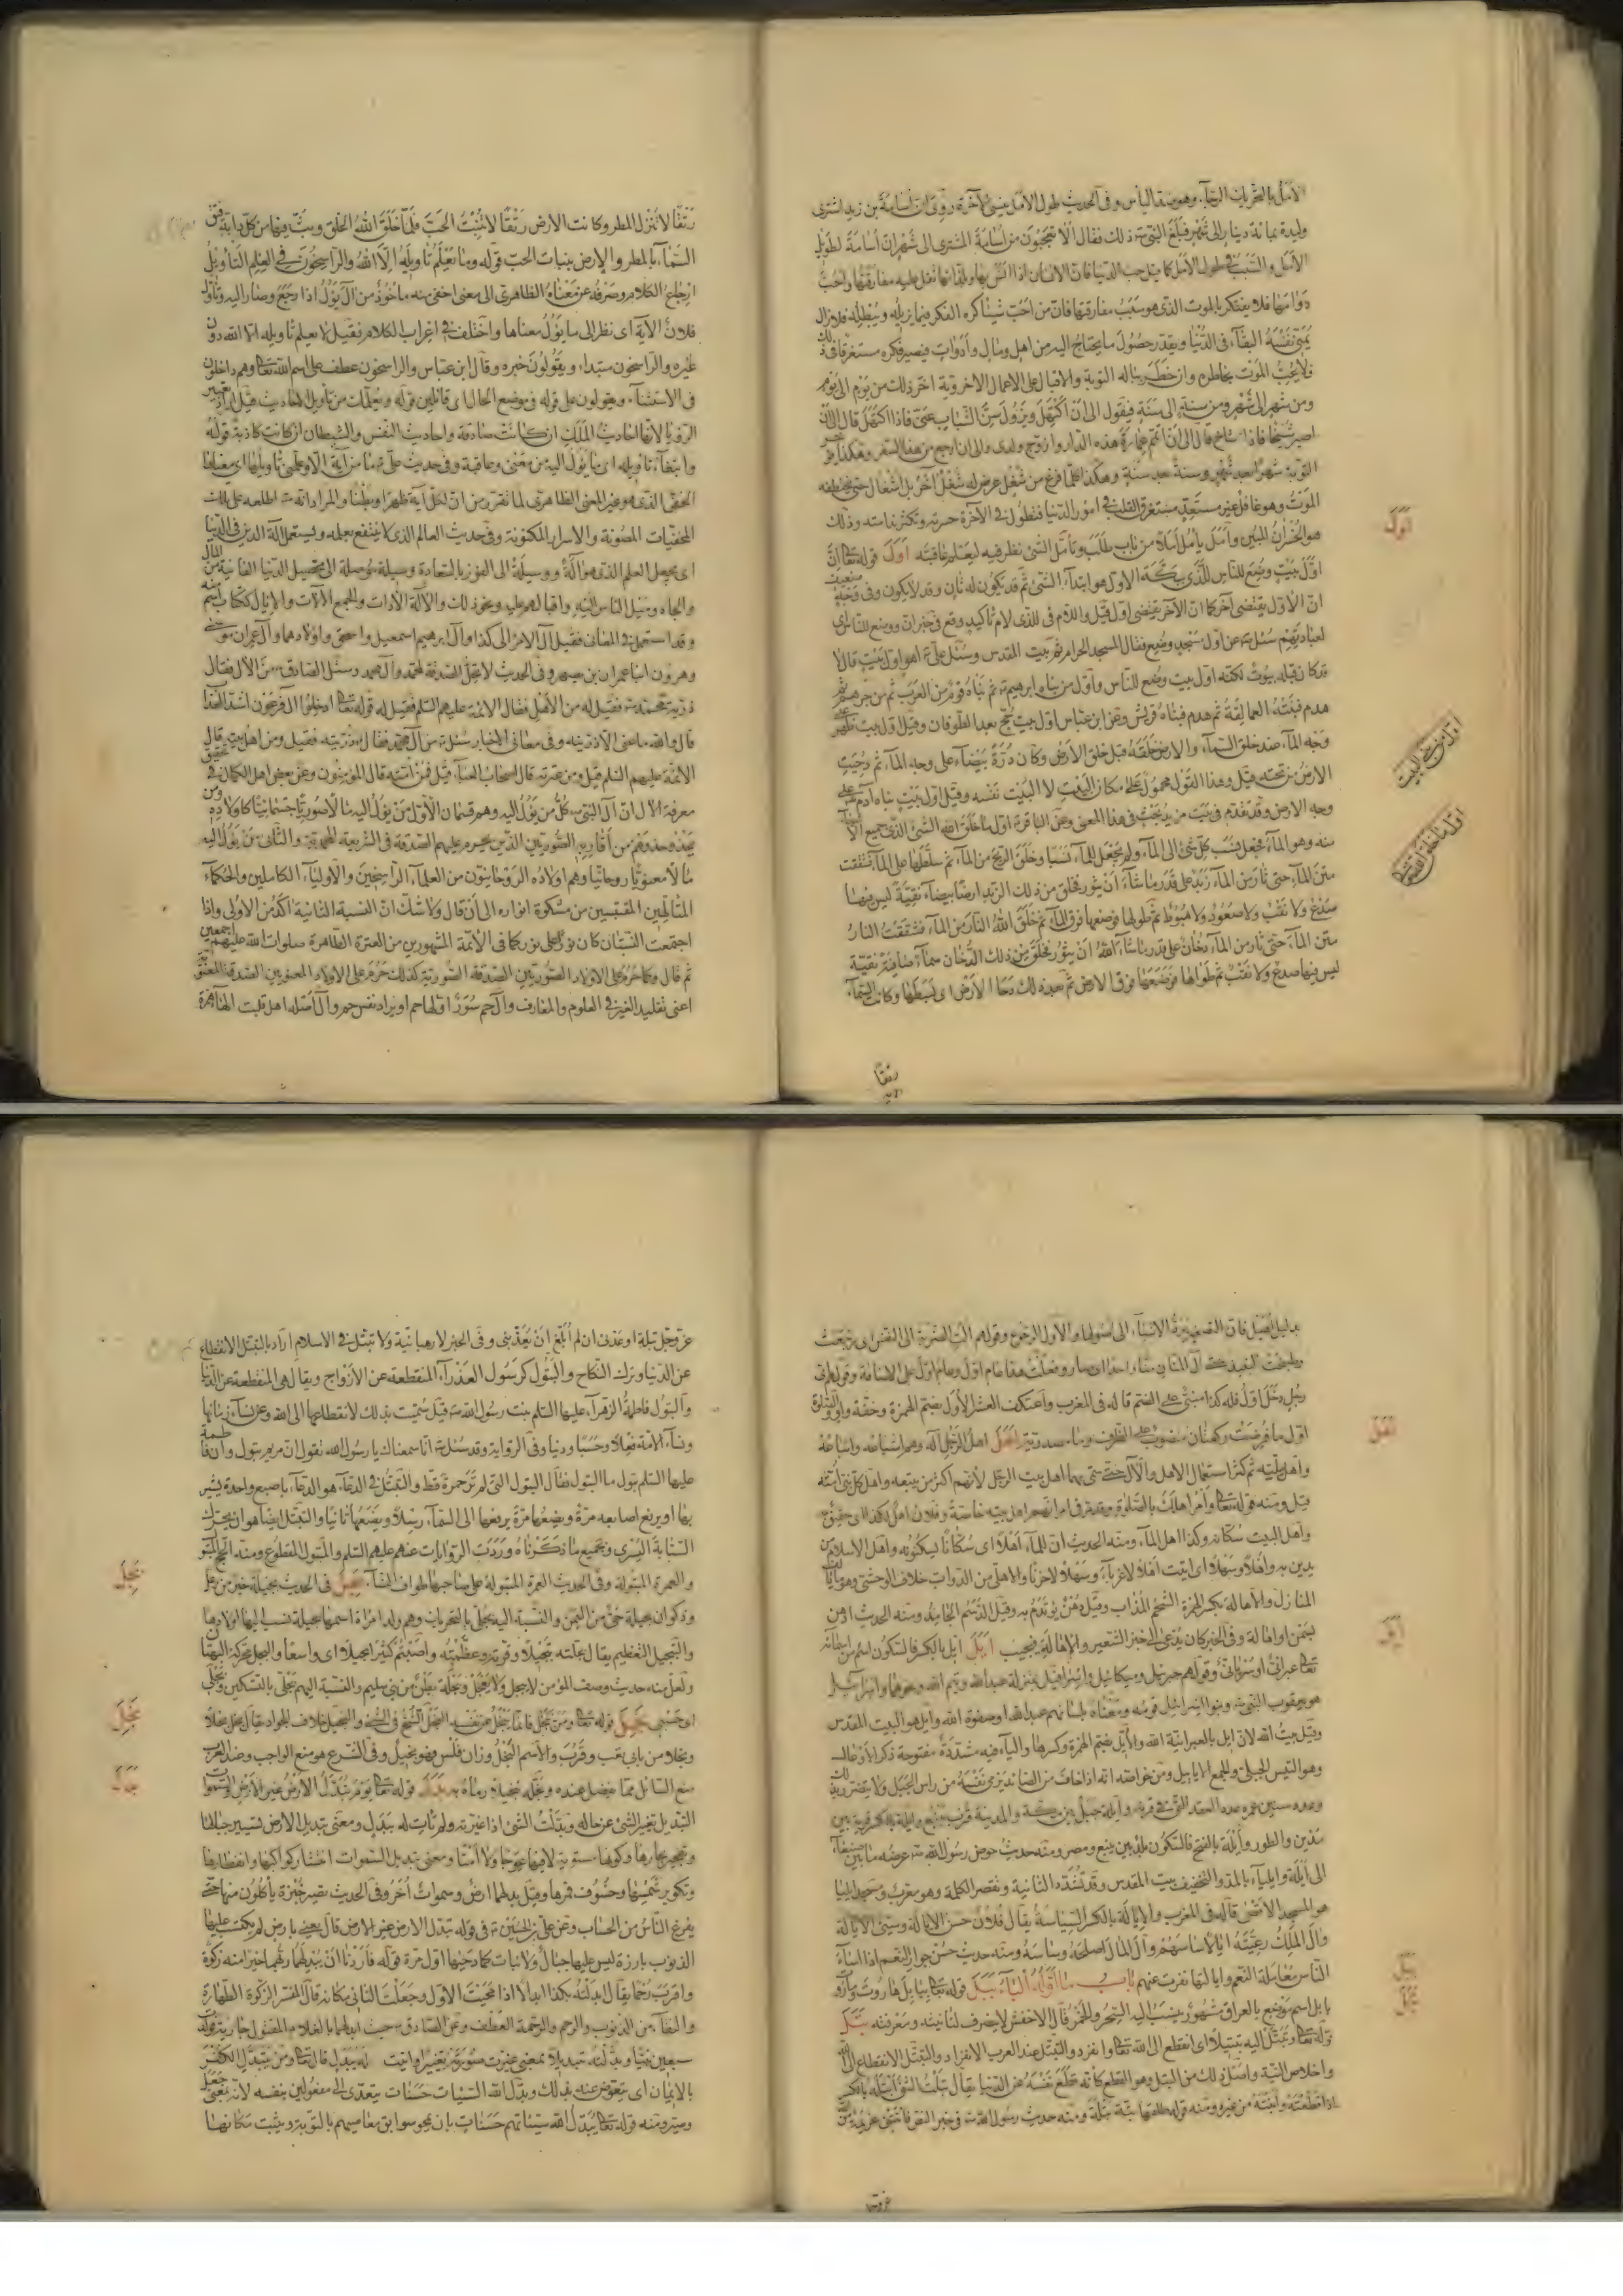 الأمل بالتحريك الرجاء وهو ضد اليأس وفي الحديث طول الأمل ينسي الآخرة روي أن أسامة بن زيد اشترى
وليدة بمائة دينار إلى شهر فبلغ النبي ذلك فقال ألا تعجبون من أسامة المشتري إلى شهر إن أسامة لطويل
الأمل والسبب في طول الأمل كما قيل حب الدنيا فإن الإنسان إذا أنس بها وبلذاتها ثقل عليه مفارقتها وأحب
دوامها فلا يفتكر بالموت الذي هو سبب مفارقتها فإن من أحب شيئا كره الفكر فيما يزيله ويبطله فلا يزال
يمني نفسه البقاء في الدنيا ويقدر حصول ما يحتاج إليه من أهل ومال وأدوات فيصير فكره مستغرقا في ذلك
فلا يخطر الموت بخاطره وإن خطر بباله التوبة والإقبال على الأعمال الأخروية أخر ذلك من يوم إلى يوم
ومن شهر إلى شهر ومن سنة إلى سنة فيقول إلى أن أكتهل ويزول سن الشباب عني فإذا اكتهل قال إلى أن
أصير شيخا فإذا شاخ قال إلى أن أتمم عمارة هذه الدار وأزوج ولدي وإلى أن أرجع من هذا السفر وهكذا يؤخر
التوبة شهرا بعد شهر وسنة بعد سنة وهكذا كلما فرغ من شغل عرض له شغل آخر بل أشغال حتى يختطفه
الموت وهو غافل غير مستعد مستغرق القلب في أمور الدنيا فتطول في الآخرة حسرته وتكثر ندامته وذلك
هو الخسران المبين وأمل يأمل أملا من باب طلب وتأمل الشيء نظر فيه ليعلم عاقبته أول قوله تعالى إن
أول بيت وضع للناس للذي ببكة الأول هو ابتداء الشيء ثم قد يكون له ثان وقد لا يكون وفي وجه ضعيف
أن الأول يقتضي آخر كما أن الآخر يقتضي أول قيل واللام في للذي لام تأكيد وقع في خبر إن ووضع للناس أي
لعبادتهم سئل عن أول مسجد وضع فقال المسجد الحرام ثم بيت المقدس وسئل علي أهو أول بيت قال لا
قد كان قبله بيوت لكنه أول بيت وضع للناس وأول من بناه إبراهيم ثم بناه قوم من العرب ثم من جرهم ثم
هدم فبنته العمالقة ثم هدم فبناه قريش وعن ابن عباس أول بيت حج بعد الطوفان وقيل أول بيت ظهر على
وجه الماء عند خلق السماء والأرض خلقه قبل خلق الأرض وكان درة بيضاء على وجه الماء ثم دحيت
الأرض من تحته قيل وهذا القول محمول على مكان البيت لا البيت نفسه وقيل أول بيت بناه آدم على
وجه الأرض وقد تقدم في بيت مزيد بحث في هذا المعنى وعن الباقر أول ما خلق الله الشيء الذي جميع الأشياء
منه وهو الماء فجعل نسب كل شيء إلى الماء ولم يجعل للماء نسبا وخلق الريح من الماء ثم سلطها على الماء فشققت
متن الماء حتى ثار من الماء زبد على قدر ما شاء أن يثور فخلق من ذلك الزبد أرضا بيضاء نقية ليس فيها
صدع ولا نقب ولا صعود ولا هبوط ثم طواها فوضعها فوق الماء ثم خلق الله النار من الماء فشققت النار
متن الماء حتى ثار من الماء دخان على قدر ما شاء الله أن يثور فخلق من ذلك الدخان سماء صافية نقية
ليس فيها صدع ولا نقب ثم طواها فوضعها فوق الأرض ثم بعد ذلك دحا الأرض أي بسطها وكانت السماء
أول
أول موضع البيت
أول ما خلق الله
رتقا
رتقا لا تنزل المطر وكانت الأرض رتقا لا تنبت الحب فلما خلق الله الخلق وبث فيها من كل دابة فتق
السماء بالمطر والأرض بنبات الحب قوله وما يعلم تأويله إلا الله والراسخون في العلم التأويل
إرجاع الكلام وصرفه عن معناه الظاهري إلى معنى أخفى منه مأخوذ من آل يؤول إذا رجع وصار إليه وتأول
فلان الآية أي نظر إلى ما يؤول معناها واختلف في إعراب الكلام فقيل لا يعلم تأويله إلا الله دون
غيره والراسخون مبتدأ ويقولون خبره وقال ابن عباس والراسخون عطف على اسم الله تعالى وهم داخلون
في الاستثناء ويقولون على قوله في موضع الحال أي قائلين قوله ويعلمك من تأويل الأحاديث قيل أراد تعبير
الرؤيا لأنها أحاديث الملك إن كانت صادقة وأحاديث النفس والشيطان إن كانت كاذبة قوله
وابتغاء تأويله أي ما يؤول إليه من معنى وعاقبة وفي حديث علي ما من آية إلا وعلمني تأويلها أي معناها
الخفي الذي هو غير المعنى الظاهري لما تقرر من أن لكل آية ظهرا وبطنا والمراد أنه اطلعه على تلك
المخفيات المصونة والأسرار المكنونة وفي حديث العالم الذي لا ينتفع بعلمه ويستعمل آلة الدين في الدنيا
أي يجعل العلم الذي هو آلة ووسيلة إلى الفوز بالسعادة وسيلة موصلة إلى تحصيل الدنيا الفانية من المال
والجاه وميل الناس إليه وإقبالهم عليه ونحو ذلك والآلة الأداة والجمع الآلات والإيال ككتاب اسم منه
وقد استعمل في المعاني فقيل آل الأمر إلى كذا وآل إبراهيم إسمعيل وإسحق وأولادهما وآل عمران موسى
وهرون ابنا عمران بن يصهر وفي الحديث لا تحل الصدقة لمحمد وآل محمد وسئل الصادق من الآل فقال
ذرية محمد فقيل له من الأهل فقال الأئمة عليهم السلم فقيل له قوله تعالى أدخلوا آل فرعون أشد العذاب
قال والله ما عنى إلا ذريته وفي معاني الأخبار سئل من آل محمد فقال ذريته فقيل ومن أهل بيته قال
الأئمة عليهم السلم قيل ومن عترته قال أصحاب العباء قيل فمن أمته قال المؤمنون وعن بعض أهل الكمال في تحقيق
معرفة الآل أن آل النبي كل من يؤول إليه وهم قسمان الأول من يؤول إليه مآلا صوريا جسمانيا كأولاده ومن
يحذو حذوهم من أقاربه الصوريين الذين يحرم عليهم الصدقة في الشريعة المحمدية والثاني من يؤول إليه
مآلا معنويا روحانيا وهم أولاده الروحانيون من العلماء الراسخين والأولياء الكاملين والحكماء
المتألهين المقتبسين من مشكوة أنواره إلى أن قال ولا شك أن النسبة الثانية آكد من الأولى وإذا
اجتمعت النسبتان كان نورا على نور كما في الأئمة المشهورين من العترة الطاهرة صلوات الله عليهم أجمعين
ثم قال وكما حرم على الأولاد الصوريين الصدقة الصورية كذلك حرم على الأولاد المعنويين الصدقة المعنوية
أعني تقليد الغير في العلوم والمعارف وآل حم سور أولها حم أو يراد نفس حم وآل أصله أهل قلبت الهاء همزة
بدليل أهيل فإن التصغير يرد الأشياء إلى أصولها والأول الرجوع وقولهم آلت الضربة إلى النفس أي رجعت
رجل دخل أول فله كذا مبني على الضم قاله في المغرب واعتكف العشر الأول بضم الهمزة وخفة واو
وأهل البيت سكانه وكذا أهل الماء ومنه الحديث إن للماء أهلا أي سكانا يسكنونه وأهل الإسلام من
يدين به وأهلا وسهلا أي أتيت أهلا لا غرباء وسهلا لا حزنا والأهلي من الدواب خلاف الوحشي وهو ما يألف
المنازل والإهالة بكسر الهمزة الشحم المذاب وقيل دهن يؤتدم به وقيل الدسم الجامد ومنه الحديث ادهن
بسمن أو إهالة وفي الخبر كان يدعى إلى خبز الشعير والإهالة فيجيب إيل إيل بالكسر فالسكون اسم من أسمائه
تعالى عبراني أو سرياني وقولهم جبرئيل وميكائيل وإسرافيل بمنزلة عبد الله وتيم الله ونحوهما وإسرائيل
هو يعقوب النبي وبنو إسرائيل قومه ومعناه بلسانهم عبد الله أو صفوة الله وإيل هو البيت المقدس
وقيل بيت الله لأن إيل بالعبرانية الله والأيل بضم الهمزة وكسرها والياء فيه مشددة مفتوحة ذكر الأوعال
وهو التيس الجبلي والجمع الأياييل ومن خواصه أنه إذا خاف من الصائد يرمي نفسه من رأس الجبل ولا يتضرر بذلك
مدين والطور وأيلة بالفتح فالسكون بلد بين ينبع ومصر ومنه حديث حوض رسول الله عرضه ما بين صنعاء
إلى أيلة وإيلياء بالمد والتخفيف بيت المقدس وقد تشدد الثانية وتقصر الكلمة وهو معرب ومسجد إيليا
هو المسجد الأقصى قاله في المغرب والإيالة بالكسر السياسة يقال فلان حسن الإيالة وسيئ الإيالة
وآل الملك رعيته إيالا ساسهم وآل المال أصلحه وساسه ومنه حديث حسن جوار النعم إذا أساء
الناس معاملة النعم وإيالتها نفرت عنهم باب ما أوله الباء ببل قوله تعالى ببابل هاروت وماروت
بابل اسم موضع بالعراق مشهور ينسب إليه السحر والخمر قال الأخفش لا ينصرف لتأنيثه ومعرفته بتل
قوله تعالى وتبتل إليه تبتيلا أي انقطع إلى الله تعالى وانفرد والتبتل عند العرب الانفراد والتبتل الانقطاع إلى الله
وإخلاص النية وأصل ذلك من البتل وهو القطع كأنه قطع نفسه عن الدنيا يقال بتلت الشيء أبتله بالكسر
أهل
إيل
ببل
بتل
عز وجل تبلة أو عذي إن لم أبلغ أن يعذبني وفي الخبر لا رهبانية ولا تبتل في الإسلام أراد بالتبتل الانقطاع
عن الدنيا وترك النكاح والبتول كرسول العذراء المنقطعة عن الأزواج ويقال هي المنقطعة عن الدنيا
والبتول فاطمة الزهراء عليها السلم بنت رسول الله قيل سميت بذلك لانقطاعها إلى الله وعن نساء زمانها
ونساء الأمة فعلا وحسبا ودينا وفي الرواية وقد سئل إنا سمعناك يا رسول الله تقول إن مريم بتول وإن فاطمة
عليها السلم بتول ما البتول فقال البتول التي لم تر حمرة قط والتبتل في الدعاء هو الدعاء بإصبع واحدة يشير
بها أو يرفع أصابعه مرة ويضعها مرة يرفعها إلى السماء رسلا ويضعها تأنيا والتبتل أيضا هو أن يحرك
السبابة اليسرى وبجميع ما ذكرناه وردت الروايات عنهم عليهم السلم والمبتول المقطوع ومنه الحج المبتول
والعمرة المبتولة وفي الحديث العمرة المبتولة على صاحبها طواف النساء بجل في الحديث بجيلة خير من رعل
وذكوان بجيلة حي من اليمن والنسبة إليه بجلي بالتحريك وهم ولد امرأة اسمها بجيلة نسب إليها أولادها
والتبجيل التعظيم يقال بجلته تبجيلا وقرته وعظمته وأصبتم كثيرا بجيلا أي واسعا والبجل محركة البهتان
ولعل منه حديث وصف المؤمن لا يبجل ولا يعجل وبجلة بطن من بني سليم والنسبة إليهم بجلي بالتسكين وبجلي
أي حسبي بخل قوله تعالى ومن يبخل فإنما يبخل عن نفسه البخل الشح في الشيء والبخيل خلاف الجواد يقال بخل بخلا
وبخلا من بابي تعب وقرب والاسم البخل وزان فلس فهو بخيل وفي الشرع هو منع الواجب وعند العرب
منع السائل مما يفضل عنده وبخله تبخيلا رماه به بدل قوله تعالى يوم تبدل الأرض غير الأرض والسموات
التبديل تغير الشيء عن حاله وبدلت الشيء إذا غيرته ولم تأت له ببدل ومعنى تبديل الأرض تسيير جبالها
وتفجير بحارها وكونها مستوية لا فيها عوجا ولا أمتا ومعنى تبديل السموات انتثار كواكبها وانفطارها
وتكوير شمسها وخسوف قمرها وقيل يبدلها أرض وسموات أخر وفي الحديث تصير خبزة يأكلون منها حتى
يفرغ الناس من الحساب وعن علي بن الحسين في قوله تبدل الأرض غير الأرض قال يعني بأرض لم يكتسب عليها
الذنوب بارزة ليس عليها جبال ولا نبات كما دحيها أول مرة قوله فأردنا أن يبدلهما ربهما خيرا منه زكوة
وأقرب رحما يقال أبدلته بكذا إبدالا إذا نحيت الأول وجعلت الثاني مكانه قال المفسر الزكوة الطهارة
والنقاء من الذنوب والرحم والرحمة العطف وعن الصادق حيث أبدلهما بالغلام المقتول جارية فولدت
سبعين نبيا وبدلته تبديلا بمعنى غيرت صورته تغييرا قال تعالى ومن يتبدل الكفر
بالإيمان أي يتعوض عنه بذلك وبدل الله السيئات حسنات يتعدى إلى مفعولين بنفسه لأنه بمعنى جعل
وصير ومنه قوله تعالى يبدل الله سيئاتهم حسنات بأن يمحو سوابق معاصيهم بالتوبة ويثبت مكانها
بجل
بخل
بدل